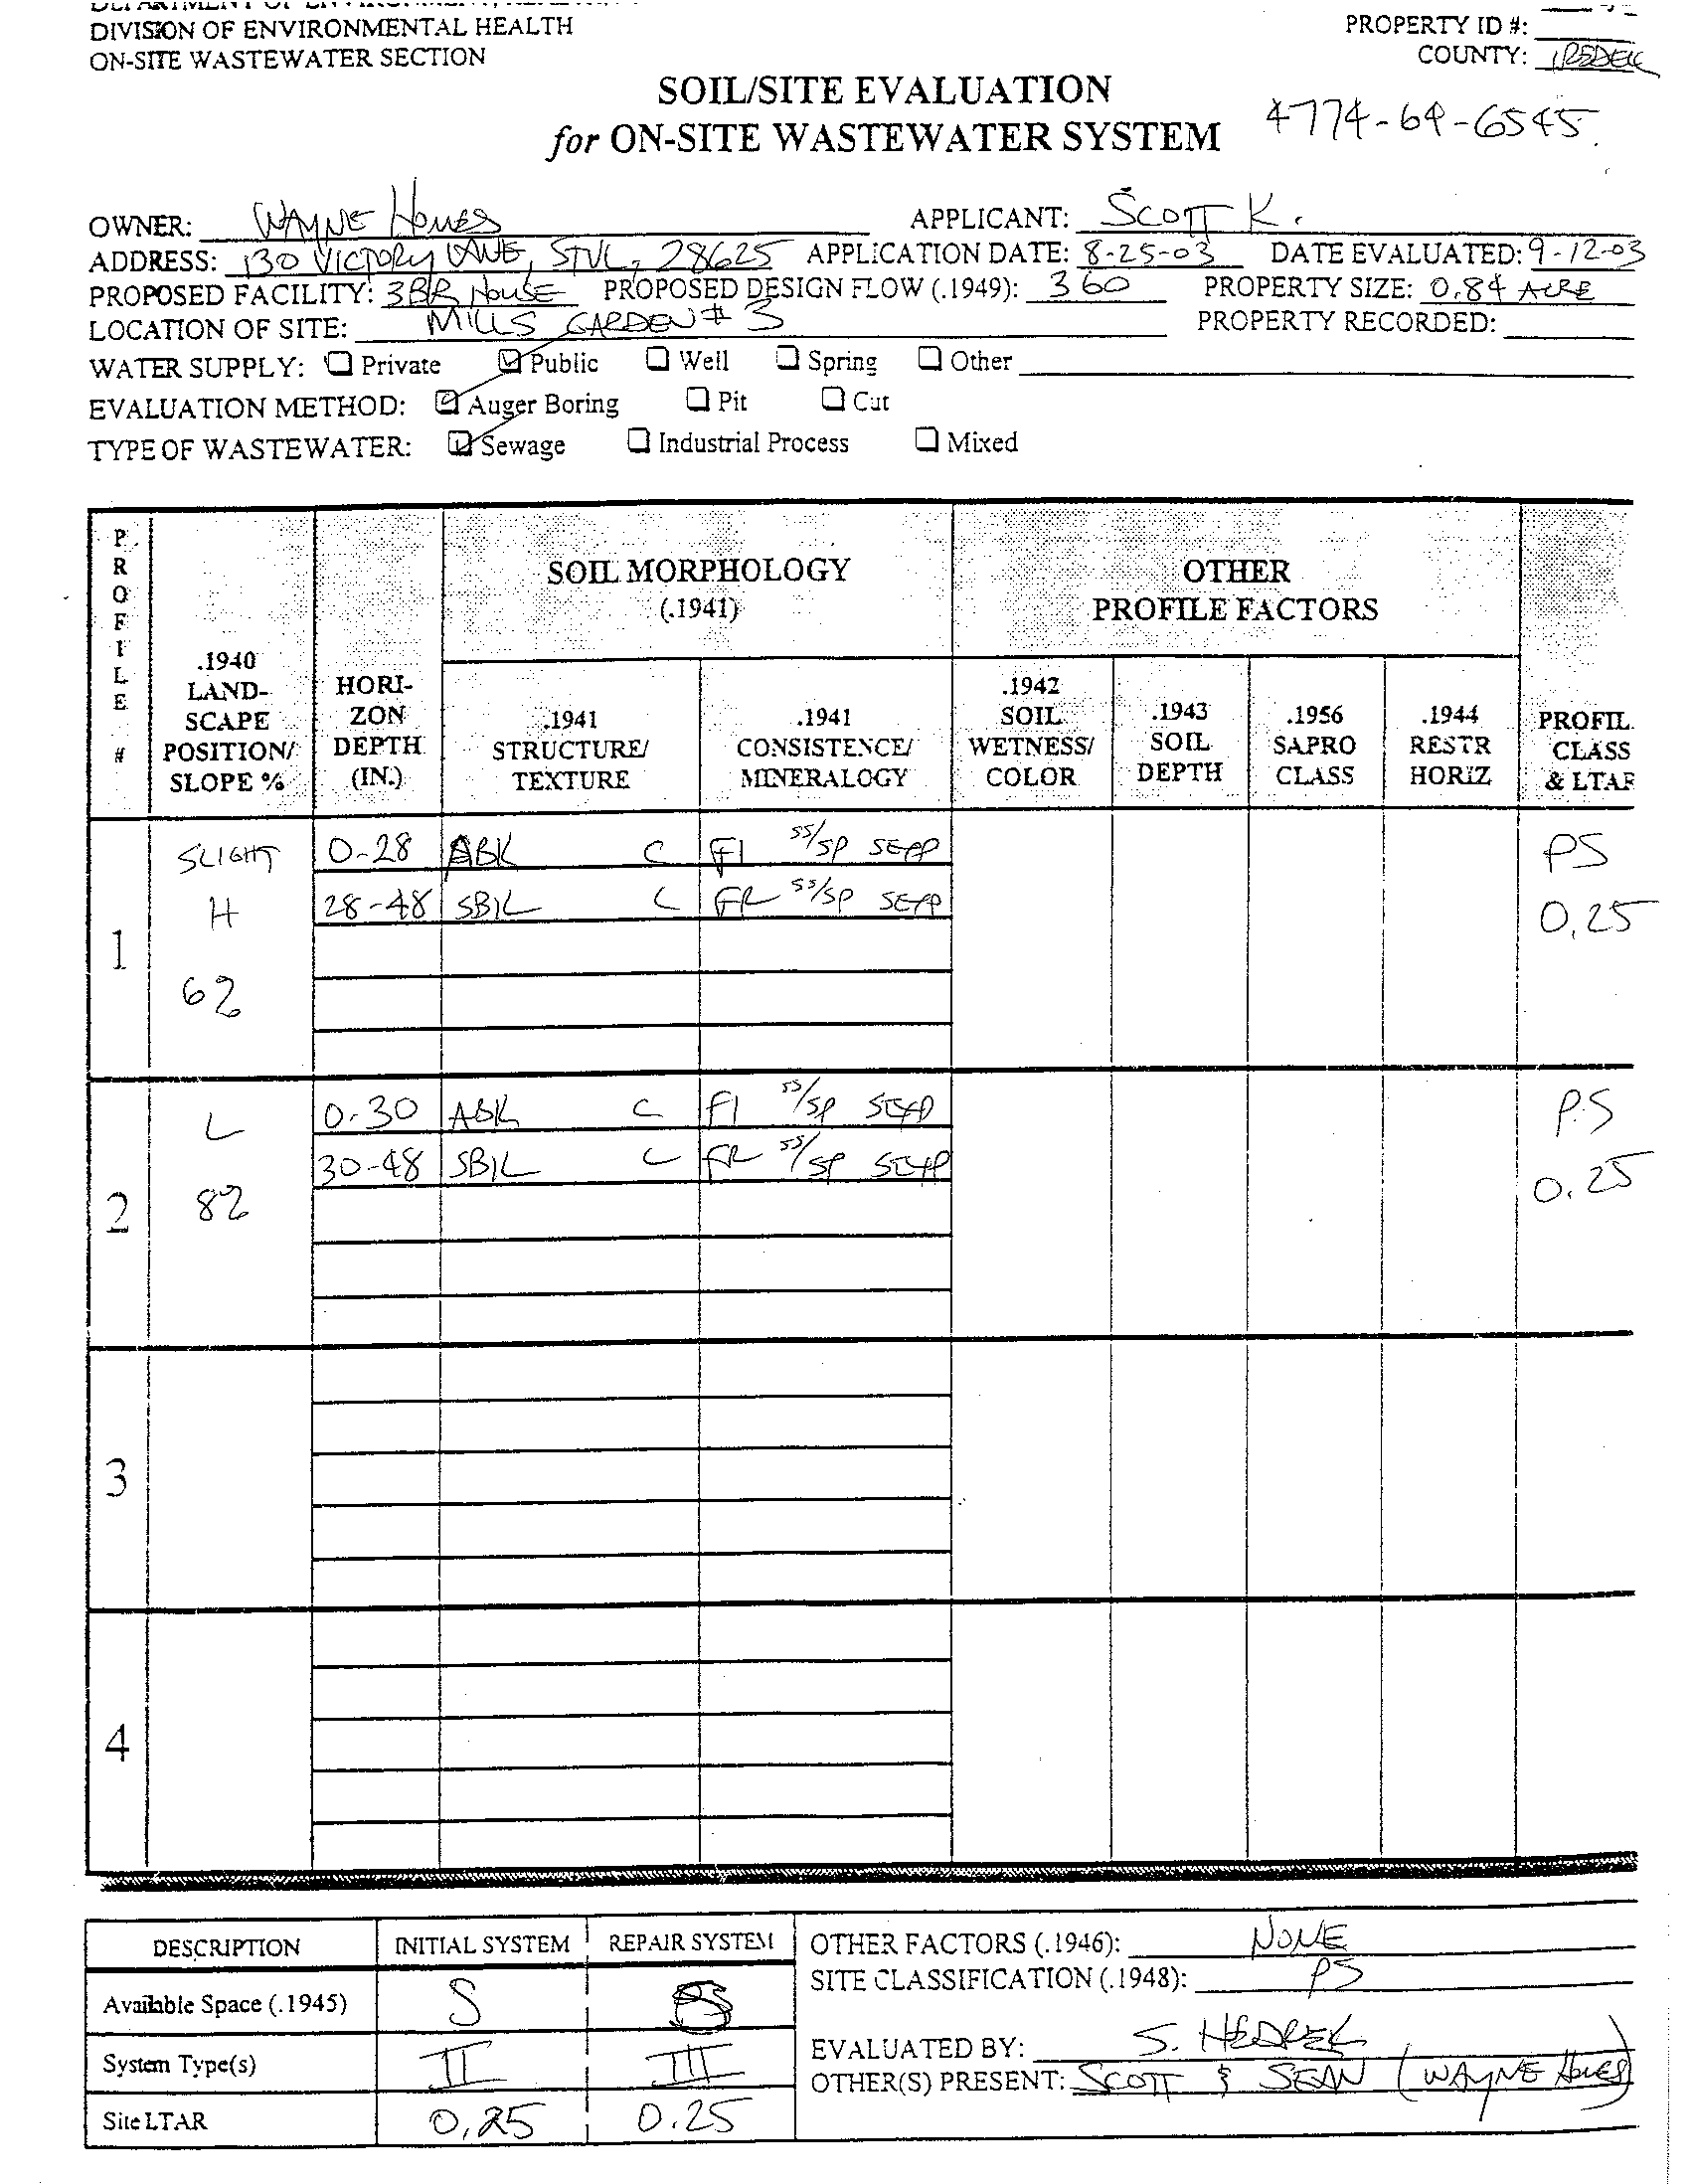 DIVISION OF ENVIRONMENTAL HEALTH
ON-SITE WASTEWATER SECTION
PROPERTY ID #:
COUNTY: IREDELL
SOIL/SITE EVALUATION
for ON-SITE WASTEWATER SYSTEM
4774-69-6545
OWNER: WAYNE HOMES APPLICANT: SCOTT K.
ADDRESS: 130 VICTORY LANE, STVL, 28625 APPLICATION DATE: 8-25-03 DATE EVALUATED: 9-12-03
PROPOSED FACILITY: 3BR HOUSE PROPOSED DESIGN FLOW (.1949): 360 PROPERTY SIZE: 0.84 ACRE
LOCATION OF SITE: MILLS GARDEN # 3 PROPERTY RECORDED:
WATER SUPPLY: Private Public Well Spring Other
EVALUATION METHOD: Auger Boring Pit Cut
TYPE OF WASTEWATER: Sewage Industrial Process Mixed
PROFILE #
.1940 LAND-SCAPE POSITION/ SLOPE %
HORI-ZON DEPTH (IN.)
SOIL MORPHOLOGY (.1941)
.1941 STRUCTURE/ TEXTURE
.1941 CONSISTENCE/ MINERALOGY
OTHER PROFILE FACTORS
.1942 SOIL WETNESS/ COLOR
.1943 SOIL DEPTH
.1956 SAPRO CLASS
.1944 RESTR HORIZ
PROFIL CLASS & LTAR
1 SLIGHT H 6%
0-28 ABK C FI SS/SP SEXP
28-48 SBK C FR SS/SP SEXP
PS
0.25
2 L 8%
0-30 ABK C FI SS/SP SEXP
30-48 SBK C FR SS/SP SEXP
P.S
0.25
3
4
DESCRIPTION INITIAL SYSTEM REPAIR SYSTEM
Available Space (.1945) S PS
System Type(s) II III
Site LTAR 0.25 0.25
OTHER FACTORS (.1946): NONE
SITE CLASSIFICATION (.1948): PS
EVALUATED BY: S. HEDREK
OTHER(S) PRESENT: SCOTT & SEAN (WAYNE HOMES)